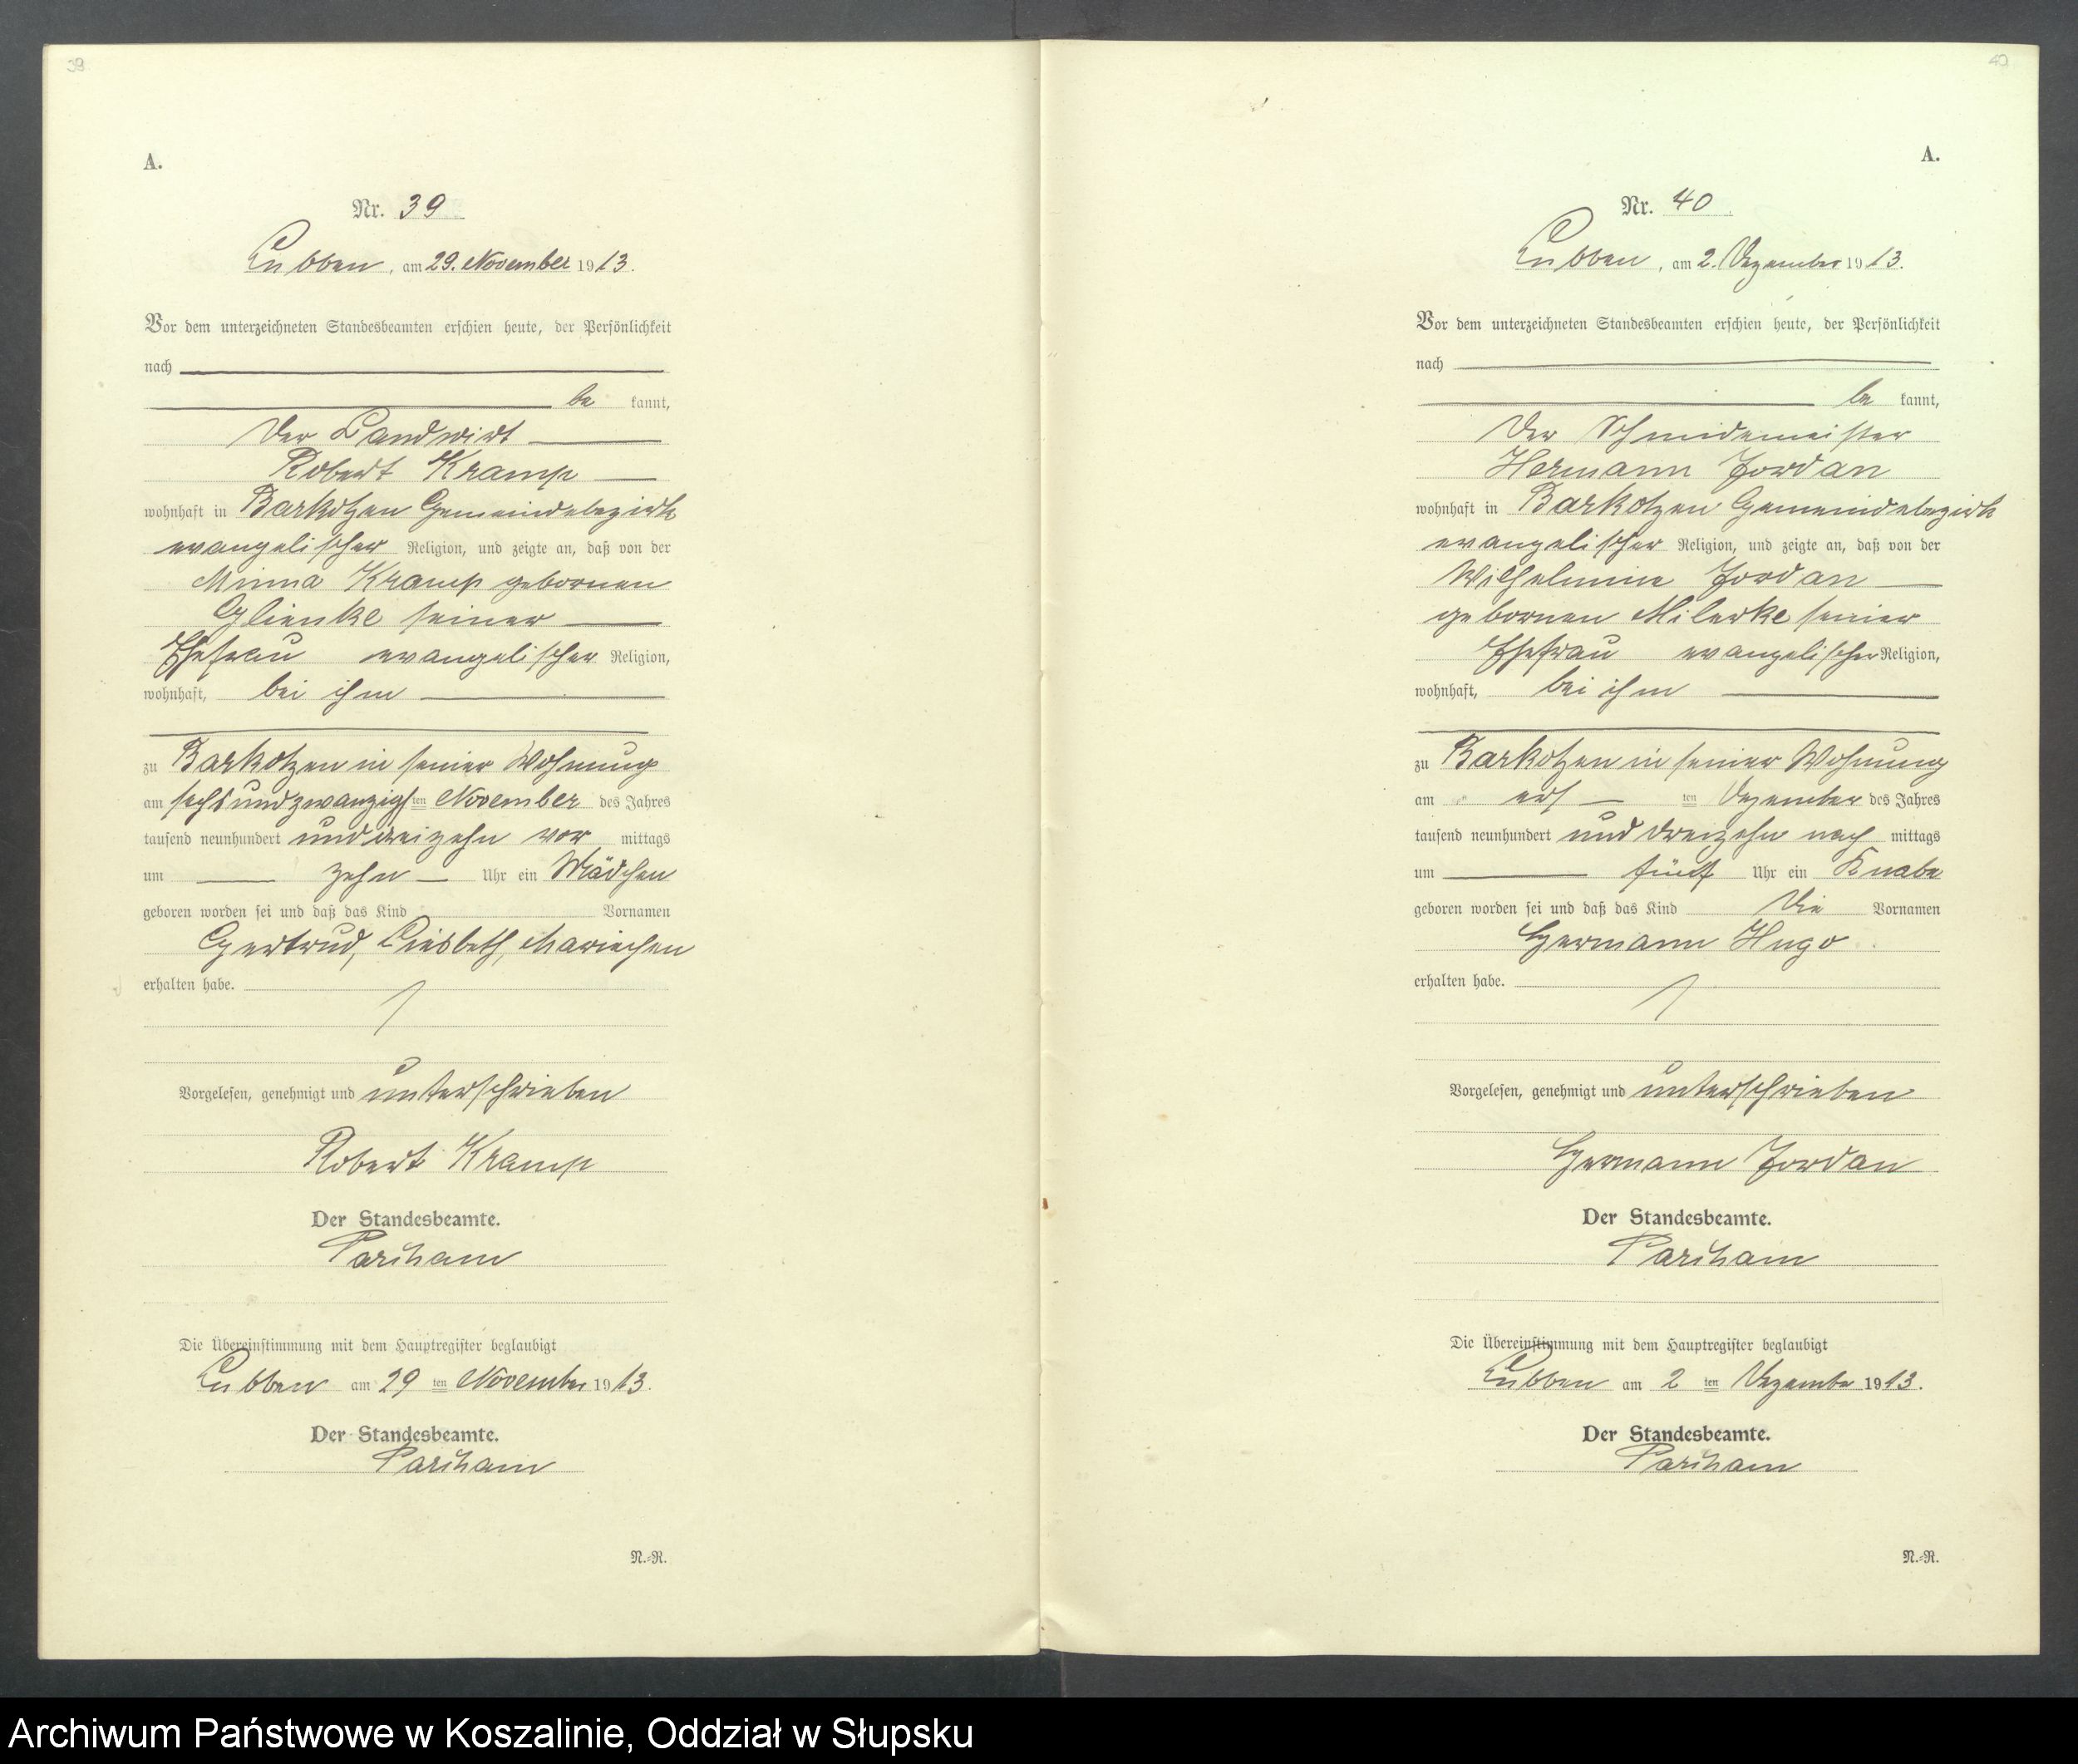 39
A.
Nr. 39
Lubben, am 29. November 1913.
Vor dem unterzeichneten Standesbeamten erschien heute, der Persönlichkeit
nach
be kannt,
der Landwirt
Robert Kramp
wohnhaft in Barkotzen Gemeindebezirk
evangelischer Religion, und zeigte an, daß von der
Minna Kramp gebornen
Glienke seiner
Ehefrau evangelischer Religion,
wohnhaft, bei ihm
zu Barkotzen in seiner Wohnung
am sechsundzwanzigsten November des Jahres
tausend neunhundert und dreizehn vor mittags
um zehn Uhr ein Mädchen
geboren worden sei und daß das Kind Vornamen
Gertrud, Liesbeth, Mariechen
erhalten habe.
Vorgelesen, genehmigt und unterschrieben
Robert Kramp
Der Standesbeamte.
Die Übereinstimmung mit dem Hauptregister beglaubigt
Lubben am 29 ten November 1913.
Der Standesbeamte.
N.-R.
40
A.
Nr. 40
Lubben, am 2. Dezember 1913.
Vor dem unterzeichneten Standesbeamten erschien heute, der Persönlichkeit
nach
be kannt,
der Schmidemeister
Hermann Jordan
wohnhaft in Barkotzen Gemeindebezirk
evangelischer Religion, und zeigte an, daß von der
Wilhelmine Jordan
gebornen seiner
Ehefrau evangelischer Religion,
wohnhaft, bei ihm
zu Barkotzen in seiner Wohnung
am ers ten Dezember des Jahres
tausend neunhundert und dreizehn nach mittags
um fünf Uhr ein Knabe
geboren worden sei und daß das Kind die Vornamen
Hermann Hugo
erhalten habe.
Vorgelesen, genehmigt und unterschrieben
Hermann Jordan
Der Standesbeamte.
Die Übereinstimmung mit dem Hauptregister beglaubigt
Lubben am 2 ten Dezember 1913.
Der Standesbeamte.
N.-R.
Archiwum Państwowe w Koszalinie, Oddział w Słupsku